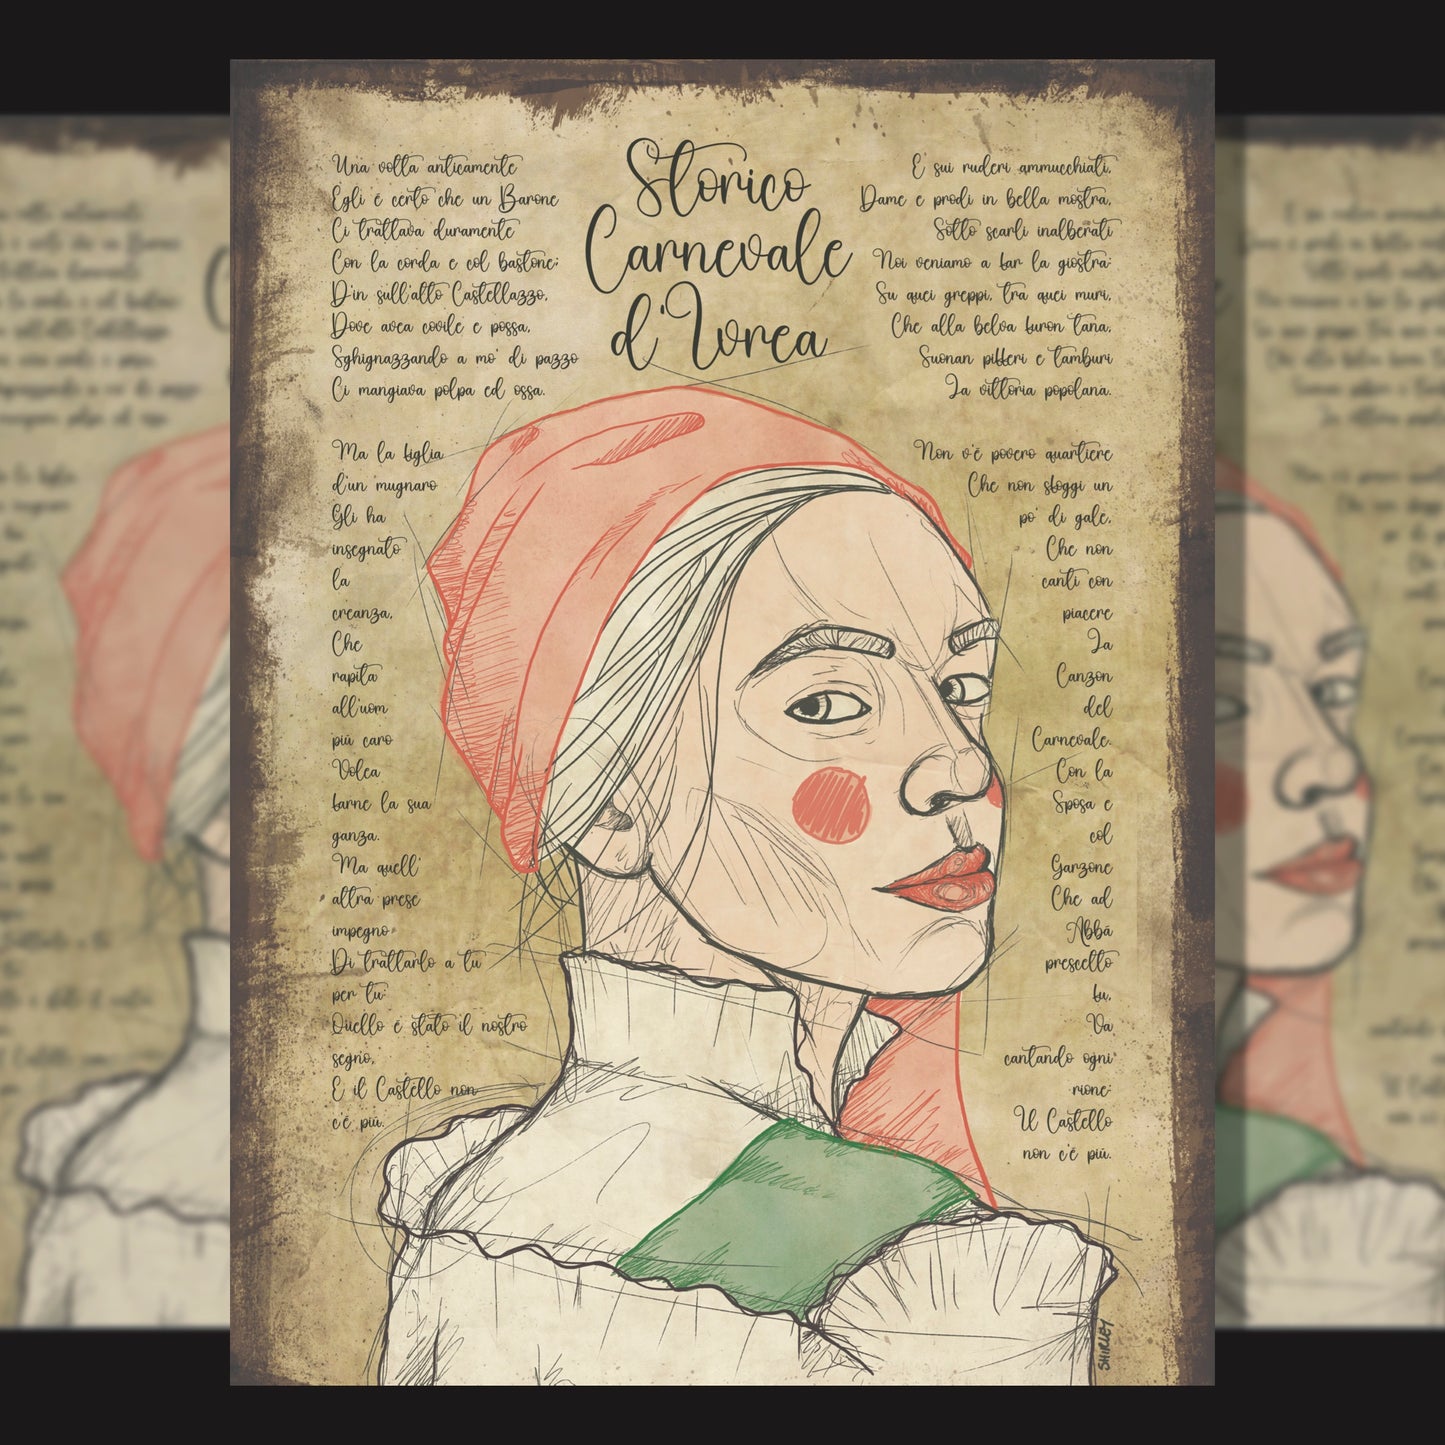 Storico
Carnevale
d'Ivrea
Una volta anticamente
Egli è certo che un Barone
Ci trattava duramente
Con la corda e col bastone;
D'in sull'alto Castellazzo,
Dove avea covile e possa,
Sghignazzando a mo' di pazzo
Ci mangiava polpa ed ossa.
Ma la figlia
d'un mugnaro
Gli ha
insegnato
la
creanza,
Che
rapita
all'uom
più caro
Volea
farne la sua
ganza.
Ma quell'
altra prese
impegno
Di trattarlo a tu
per tu:
Quello è stato il nostro
segno,
E il Castello non
c'è più.
E sui ruderi ammucchiati,
Dame e prodi in bella mostra,
Sotto scarli inalberati
Noi veniamo a far la giostra:
Su quei greppi, tra quei muri,
Che alla belva furon tana,
Suonan pifferi e tamburi
La vittoria popolana.
Non v'è povero quartiere
Che non sfoggi un
po' di gale,
Che non
canti con
piacere
La
Canzon
del
Carnevale.
Con la
Sposa e
col
Garzone
Che ad
Abbà
prescelto
fu,
Va
cantando ogni
rione:
Il Castello
non c'è più.
SHIRLEY